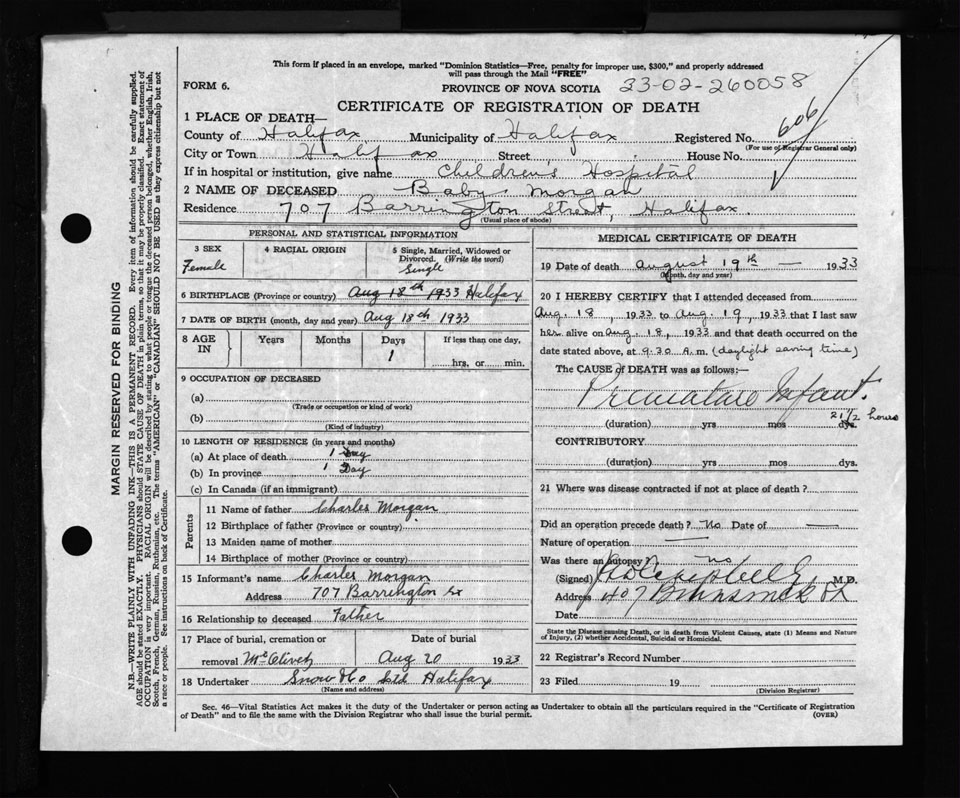 This form if placed in an envelope, marked "Dominion Statistics—Free, penalty for improper use, $300," and properly addressed
will pass through the Mail "FREE"
FORM 6.
PROVINCE OF NOVA SCOTIA 33-02-260058
CERTIFICATE OF REGISTRATION OF DEATH
1 PLACE OF DEATH—
County of Halifax Municipality of Halifax Registered No. 606
(For use of Registrar General only)
City or Town Halifax Street House No.
If in hospital or institution, give name Children's Hospital
2 NAME OF DECEASED Baby Morgan
Residence 707 Barrington Street, Halifax.
(Usual place of abode)
PERSONAL AND STATISTICAL INFORMATION
3 SEX 4 RACIAL ORIGIN 5 Single, Married, Widowed or
Divorced. (Write the word)
Female Single
6 BIRTHPLACE (Province or country) Aug 18th 1933 Halifax
7 DATE OF BIRTH (month, day and year) Aug 18th 1933
8 AGE
IN
Years Months Days If less than one day,
1
hrs. or min.
9 OCCUPATION OF DECEASED
(a)
(Trade or occupation or kind of work)
(b)
(Kind of industry)
10 LENGTH OF RESIDENCE (in years and months)
(a) At place of death 1 Day
(b) In province 1 Day
(c) In Canada (if an immigrant)
Parents
11 Name of father Charles Morgan
12 Birthplace of father (Province or country)
13 Maiden name of mother
14 Birthplace of mother (Province or country)
15 Informant's name Charles Morgan
Address 707 Barrington St
16 Relationship to deceased Father
17 Place of burial, cremation or Date of burial
removal Aug 20 1933
18 Undertaker Snow & Co Ltd Halifax
(Name and address)
MEDICAL CERTIFICATE OF DEATH
19 Date of death August 19th — 1933
(Month, day and year)
20 I HEREBY CERTIFY that I attended deceased from
Aug. 18, 1933 to Aug. 19, 1933 that I last saw
her alive on Aug. 18, 1933 and that death occurred on the
date stated above, at 9.30 A.m. (daylight saving time)
The CAUSE of DEATH was as follows:—
Premature Infant.
21 1/2 hours
(duration) yrs mos dys.
CONTRIBUTORY
(duration) yrs mos dys.
21 Where was disease contracted if not at place of death?
Did an operation precede death? No Date of —
Nature of operation —
Was there an autopsy? no
(Signed) M.D.
Address 407 Brunswick St
Date
State the Disease causing Death, or in death from Violent Causes, state (1) Means and Nature
of Injury, (2) whether Accidental, Suicidal or Homicidal.
22 Registrar's Record Number
23 Filed 19
(Division Registrar)
Sec. 46—Vital Statistics Act makes it the duty of the Undertaker or person acting as Undertaker to obtain all the particulars required in the "Certificate of Registration
of Death" and to file the same with the Division Registrar who shall issue the burial permit. (OVER)
MARGIN RESERVED FOR BINDING
N.B.—WRITE PLAINLY WITH UNFADING INK—THIS IS A PERMANENT RECORD. Every item of information should be carefully supplied.
AGE should be stated EXACTLY. PHYSICIANS should STATE CAUSE OF DEATH in plain terms, so that it may be properly classified. Exact statement of
OCCUPATION is very important. RACIAL ORIGIN will be described by stating to what people or tongue the deceased person belonged, whether English, Irish,
Scotch, French, German, Russian, Ruthenian, etc. The terms "AMERICAN" or "CANADIAN" SHOULD NOT BE USED as they express citizenship but not
a race or people. See instructions on back of Certificate.